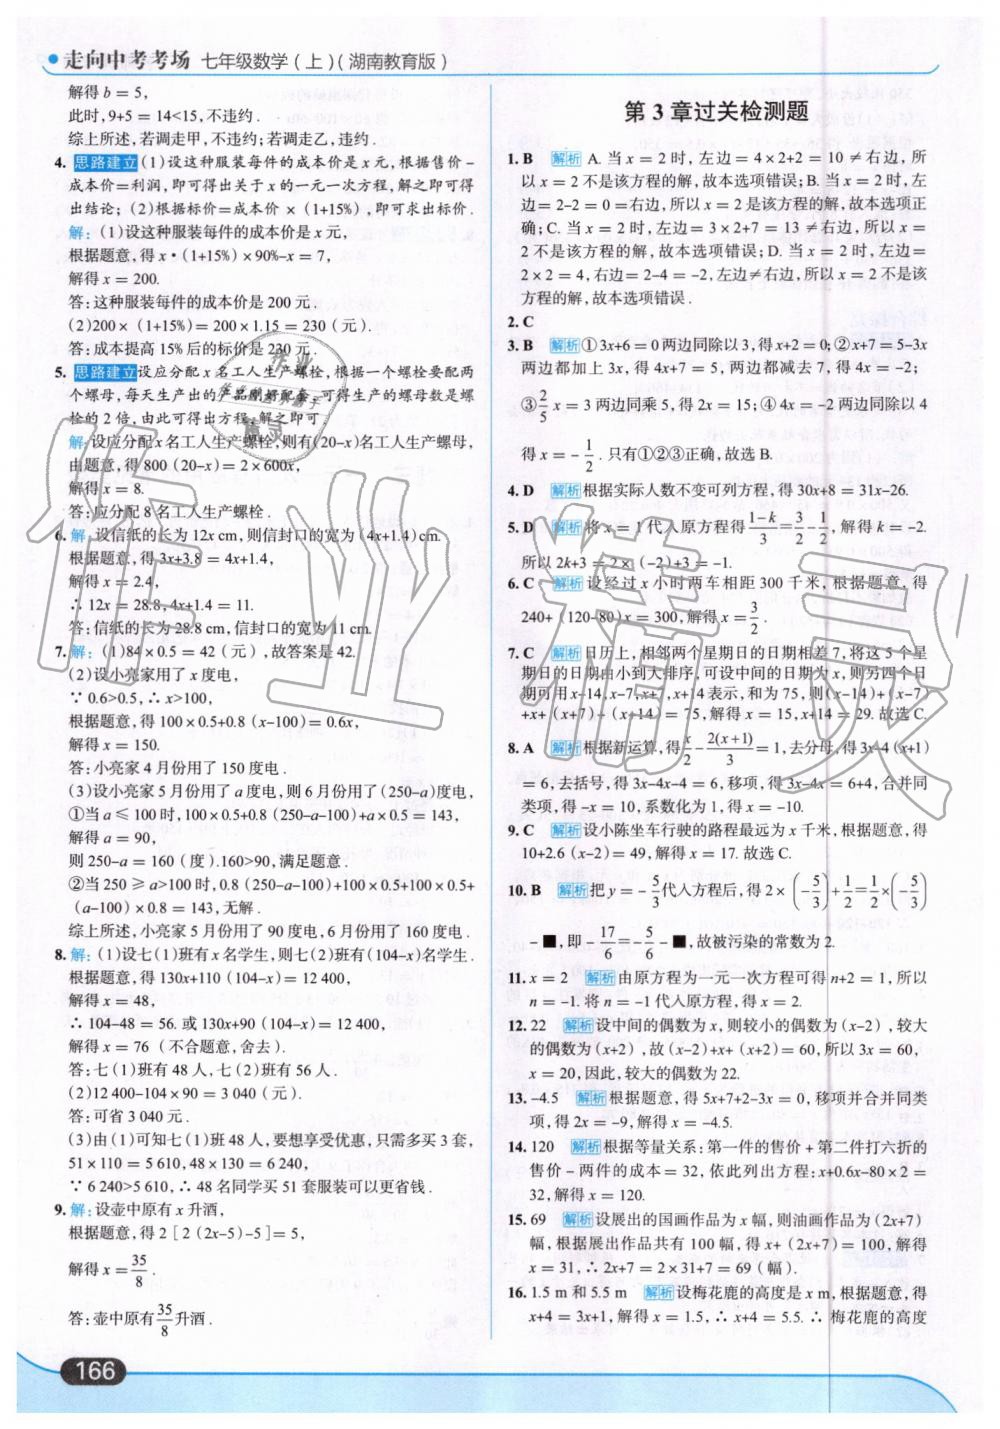 走向中考考场 七年级数学(上)(湖南教育版)
解得b=5,
此时,9+5=14<15,不违约.
综上所述,若调走甲,不违约;若调走乙,违约.
4. 思路建立 (1)设这种服装每件的成本价是x元,根据售价-
成本价=利润,即可得出关于x的一元一次方程,解之即可得
出结论;(2)根据标价=成本价×(1+15%),即可求出标价.
解:(1)设这种服装每件的成本价是x元,
根据题意,得x·(1+15%)×90%-x=7,
解得x=200.
答:这种服装每件的成本价是200元.
(2)200×(1+15%)=200×1.15=230(元).
答:成本提高15%后的标价是230元.
5. 思路建立 设应分配x名工人生产螺栓,根据一个螺栓要配两
个螺母,每天生产出的产品刚好配套,可得生产的螺母数是螺
栓的2倍,由此可得出方程,解之即可.
解:设应分配x名工人生产螺栓,则有(20-x)名工人生产螺母,
由题意,得800(20-x)=2×600x,
解得x=8.
答:应分配8名工人生产螺栓.
6. 解:设信纸的长为12x cm,则信封口的宽为(4x+1.4)cm.
根据题意,得3x+3.8=4x+1.4,
解得x=2.4,
∴12x=28.8,4x+1.4=11.
答:信纸的长为28.8 cm,信封口的宽为11 cm.
7. 解:(1)84×0.5=42(元),故答案是42.
(2)设小亮家用了x度电,
∵0.6>0.5,∴x>100,
根据题意,得100×0.5+0.8(x-100)=0.6x,
解得x=150.
答:小亮家4月份用了150度电.
(3)设小亮家5月份用了a度电,则6月份用了(250-a)度电,
①当a≤100时,100×0.5+0.8(250-a-100)+a×0.5=143,
解得a=90,
则250-a=160(度).160>90,满足题意.
②当250≥a>100时,0.8(250-a-100)+100×0.5+100×0.5+
(a-100)×0.8=143,无解.
综上所述,小亮家5月份用了90度电,6月份用了160度电.
8. 解:(1)设七(1)班有x名学生,则七(2)班有(104-x)名学生.
根据题意,得130x+110(104-x)=12 400,
解得x=48,
∴104-48=56.或130x+90(104-x)=12 400,
解得x=76(不合题意,舍去).
答:七(1)班有48人,七(2)班有56人.
(2)12 400-104×90=3 040(元).
答:可省3 040元.
(3)由(1)可知七(1)班48人,要想享受优惠,只需多买3套,
51×110=5 610,48×130=6 240,
∵6 240>5 610,∴48名同学买51套服装可以更省钱.
9. 解:设壶中原有x升酒,
根据题意,得2[2(2x-5)-5]=5,
解得x=35/8.
答:壶中原有35/8升酒.
166
第3章过关检测题
1. B 解析 A.当x=2时,左边=4×2+2=10≠右边,所
以x=2不是该方程的解,故本选项错误;B.当x=2时,左
边=2-2=0=右边,所以x=2是该方程的解,故本选项正
确;C.当x=2时,左边=3×2+7=13≠右边,所以x=
2不是该方程的解,故本选项错误;D.当x=2时,左边=
2×2=4,右边=2-4=-2,左边≠右边,所以x=2不是该
方程的解,故本选项错误.
2. C
3. B 解析 ①3x+6=0两边同除以3,得x+2=0;②x+7=5-3x
两边都加上3x,得4x+7=5,两边都减去7,得4x=-2;
③2/5x=3两边同乘5,得2x=15;④4x=-2两边同除以4
得x=-1/2.只有①②③正确,故选B.
4. D 解析 根据实际人数不变可列方程,得30x+8=31x-26.
5. D 解析 将x=1代入原方程得(1-k)/3=3/2-1/2,解得k=-2.
所以2k+3=2×(-2)+3=-1.
6. C 解析 设经过x小时两车相距300千米,根据题意,得
240+(120-80)x=300,解得x=3/2.
7. C 解析 日历上,相邻两个星期日的日期相差7,将这5个星
期日的日期由小到大排序,可设中间的日期为x,则另四个日
期可用x-14,x-7,x+7,x+14表示,和为75,则(x-14)+(x-7)
+x+(x+7)+(x+14)=75,解得x=15,x+14=29.故选C.
8. A 解析 根据新运算,得x/2-2(x+1)/3=1,去分母,得3x-4(x+1)
=6,去括号,得3x-4x-4=6,移项,得3x-4x=6+4,合并同
类项,得-x=10,系数化为1,得x=-10.
9. C 解析 设小陈坐车行驶的路程最远为x千米,根据题意,得
10+2.6(x-2)=49,解得x=17.故选C.
10. B 解析 把y=-5/3代入方程后,得2×(-5/3)+1/2=1/2×(-5/3)
-■,即-17/6=-5/6-■,故被污染的常数为2.
11. x=2 解析 由原方程为一元一次方程可得n+2=1,所以
n=-1.将n=-1代入原方程,得x=2.
12. 22 解析 设中间的偶数为x,则较小的偶数为(x-2),较大
的偶数为(x+2),故(x-2)+x+(x+2)=60,所以3x=60,
x=20,因此,较大的偶数为22.
13. -4.5 解析 根据题意,得5x+7+2-3x=0,移项并合并同类
项,得2x=-9,解得x=-4.5.
14. 120 解析 根据等量关系:第一件的售价+第二件打六折的
售价-两件的成本=32,依此列出方程:x+0.6x-80×2=
32,解得x=120.
15. 69 解析 设展出的国画作品为x幅,则油画作品为(2x+7)
幅,根据展出作品共有100幅,得x+(2x+7)=100,解得
x=31,∴2x+7=2×31+7=69(幅).
16. 1.5 m和5.5 m 解析 设梅花鹿的高度是x m,根据题意,得
x+4=3x+1,解得x=1.5,∴x+4=5.5.∴梅花鹿的高度
作业精灵